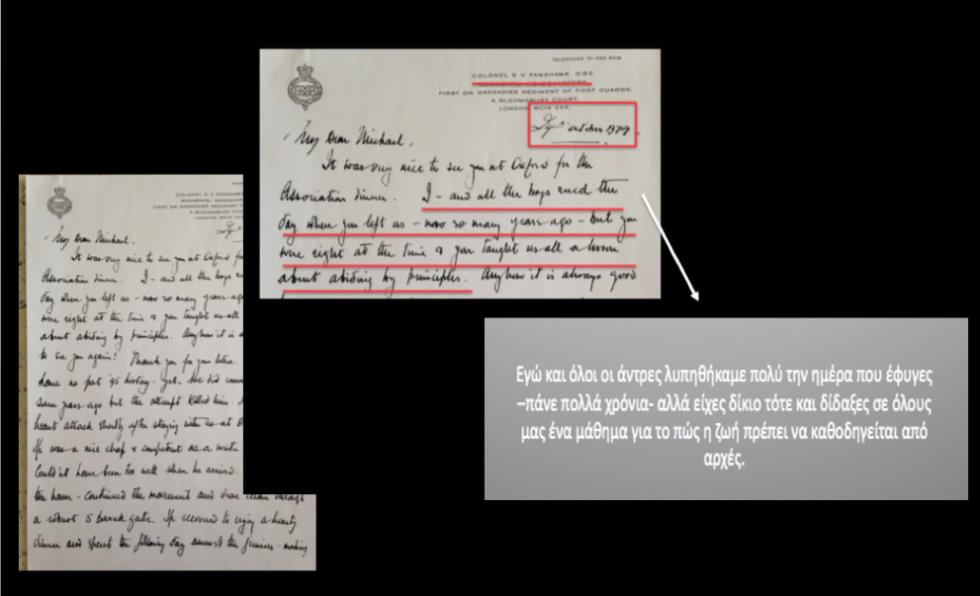 COLONEL D V FANSHAWE OBE
REGIMENTAL HEADQUARTERS
FIRST OR GRENADIER REGIMENT OF FOOT GUARDS,
4 BLOOMSBURY COURT,
LONDON, WC1A 2AX.
October 1979
My Dear Michael,
It was very nice to see you at Oxford for the
Association dinner. I - and all the boys rued the
day when you left us - now so many years ago - but you
were right at the time & you taught us all a lesson
about abiding by principles. Anyhow it is always good
My Dear Michael,
It was very nice to see you at Oxford
Association dinner. I - and all the boys
day when you left us - now so many years ago
were right at the time & you taught us all
about abiding by principles. Anyhow it is
to see you again! Thank you for your letter.
some years ago but the attempt killed him.
heart attack shortly after staying with us at
He was a nice chap & competent as a
Couldn't have been too well when he arrived.
the horn - continued the movement and
a robust 5 barred gate. He seemed to enjoy a hearty
dinner and spent the following day amongst the
Εγώ και όλοι οι άντρες λυπηθήκαμε πολύ την ημέρα που έφυγες
–πάνε πολλά χρόνια- αλλά είχες δίκιο τότε και δίδαξες σε όλους
μας ένα μάθημα για το πώς η ζωή πρέπει να καθοδηγείται από
αρχές.